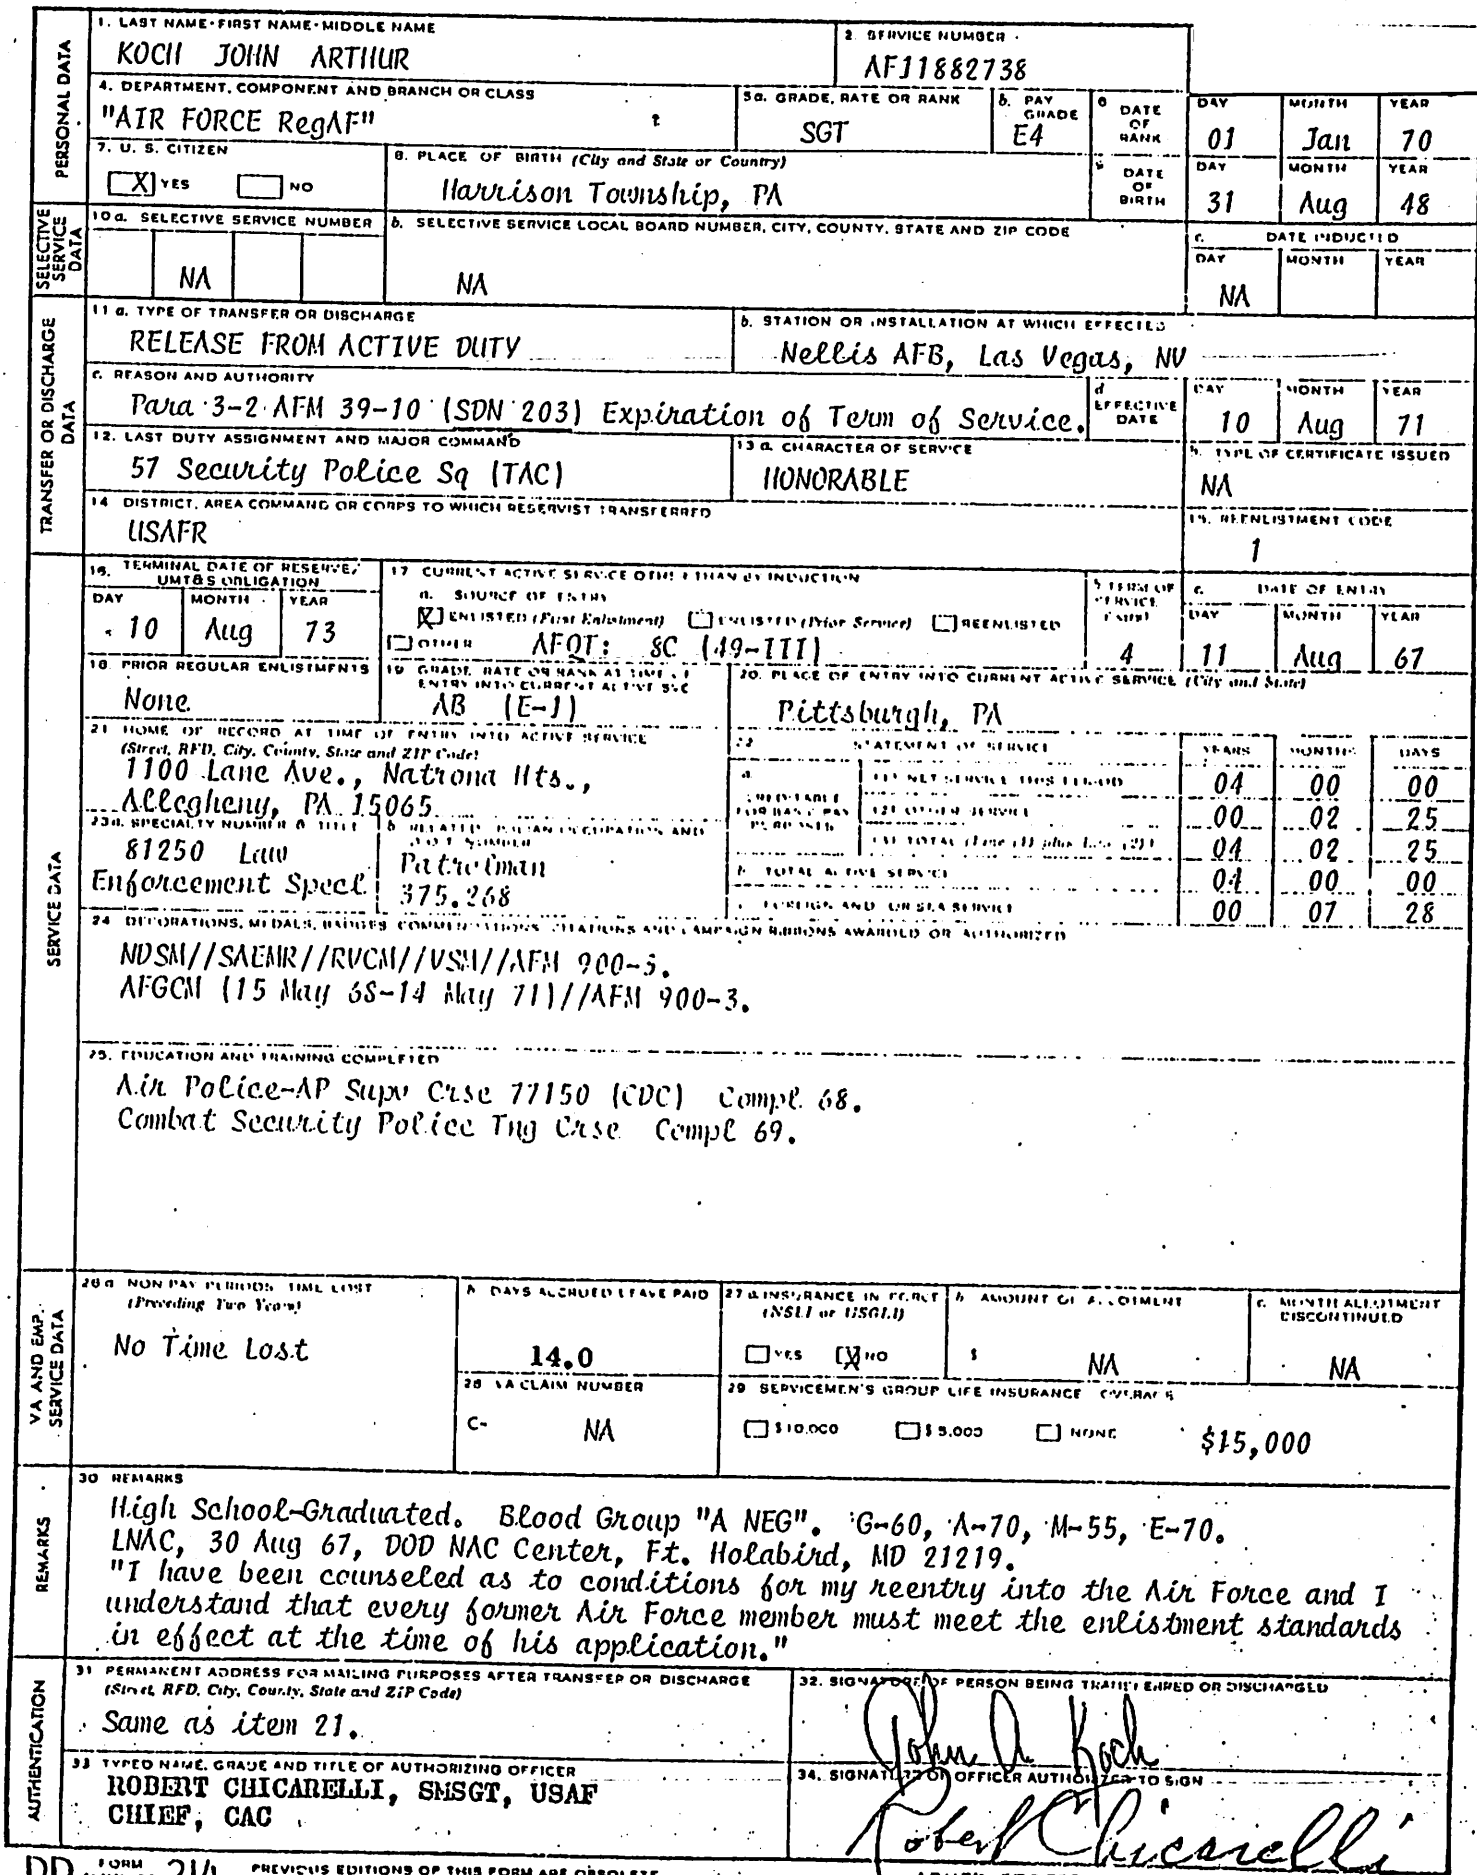 PERSONAL DATA
1. LAST NAME-FIRST NAME-MIDDLE NAME
KOCH JOHN ARTHUR
2. SERVICE NUMBER
AF11882738
4. DEPARTMENT, COMPONENT AND BRANCH OR CLASS
"AIR FORCE RegAF"
5a. GRADE, RATE OR RANK
SGT
b. PAY GRADE
E4
DATE OF RANK
DAY MONTH YEAR
01 Jan 70
7. U. S. CITIZEN
X YES NO
8. PLACE OF BIRTH (City and State or Country)
Harrison Township, PA
DATE OF BIRTH
DAY MONTH YEAR
31 Aug 48
SELECTIVE SERVICE DATA
10a. SELECTIVE SERVICE NUMBER
NA
b. SELECTIVE SERVICE LOCAL BOARD NUMBER, CITY, COUNTY, STATE AND ZIP CODE
NA
c. DATE INDUCTED
DAY MONTH YEAR
NA
TRANSFER OR DISCHARGE DATA
11 a. TYPE OF TRANSFER OR DISCHARGE
RELEASE FROM ACTIVE DUTY
b. STATION OR INSTALLATION AT WHICH EFFECTED
Nellis AFB, Las Vegas, NV
c. REASON AND AUTHORITY
Para 3-2 AFM 39-10 (SDN 203) Expiration of Term of Service.
d EFFECTIVE DATE
DAY MONTH YEAR
10 Aug 71
12. LAST DUTY ASSIGNMENT AND MAJOR COMMAND
57 Security Police Sq (TAC)
13 a. CHARACTER OF SERVICE
HONORABLE
b. TYPE OF CERTIFICATE ISSUED
NA
14 DISTRICT, AREA COMMAND OR CORPS TO WHICH RESERVIST TRANSFERRED
USAFR
15. REENLISTMENT CODE
1
SERVICE DATA
16. TERMINAL DATE OF RESERVE/ UMT&S OBLIGATION
DAY MONTH YEAR
10 Aug 73
17 CURRENT ACTIVE SERVICE OTHER THAN BY INDUCTION
a. SOURCE OF ENTRY
X ENLISTED (First Enlistment) ENLISTED (Prior Service) REENLISTED
OTHER AFQT: 8C (49-III)
b TERM OF SERVICE
4
c. DATE OF ENTRY
DAY MONTH YEAR
11 Aug 67
18. PRIOR REGULAR ENLISTMENTS
None
19 GRADE, RATE OR RANK AT TIME OF ENTRY INTO CURRENT ACTIVE SVC
AB (E-1)
20. PLACE OF ENTRY INTO CURRENT ACTIVE SERVICE (City and State)
Pittsburgh, PA
21 HOME OF RECORD AT TIME OF ENTRY INTO ACTIVE SERVICE
(Street, RFD, City, County, State and ZIP Code)
1100 Lane Ave., Natrona Hts.,
Allegheny, PA 15065
22 STATEMENT OF SERVICE
YEARS MONTHS DAYS
a. CREDITABLE FOR BASIC PAY PURPOSES
(1) NET SERVICE THIS PERIOD
04 00 00
(2) OTHER SERVICE
00 02 25
(3) TOTAL (Line (1) plus Line (2))
04 02 25
b. TOTAL ACTIVE SERVICE
04 00 00
FOREIGN AND/OR SEA SERVICE
00 07 28
23a. SPECIALTY NUMBER & TITLE
81250 Law
Enforcement Specl
b RELATED CIVILIAN OCCUPATION AND D.O.T. NUMBER
Patrolman
375.268
24 DECORATIONS, MEDALS, BADGES, COMMENDATIONS, CITATIONS AND CAMPAIGN RIBBONS AWARDED OR AUTHORIZED
NDSM//SAEMR//RVCM//VSM//AFM 900-3.
AFGCM (15 May 68-14 May 71)//AFM 900-3.
25. EDUCATION AND TRAINING COMPLETED
Air Police-AP Supv Crse 77150 (CDC) Compl 68.
Combat Security Police Tng Crse Compl 69.
VA AND EMP. SERVICE DATA
26 a NON PAY PERIODS TIME LOST
(Preceding Two Years)
No Time Lost
b DAYS ACCRUED LEAVE PAID
14.0
27 a INSURANCE IN FORCE
(NSLI or USGLI)
YES X NO
b AMOUNT OF ALLOTMENT
$ NA
c. MONTH ALLOTMENT DISCONTINUED
NA
28 VA CLAIM NUMBER
C- NA
29 SERVICEMEN'S GROUP LIFE INSURANCE COVERAGE
$10,000 $5,000 NONE $15,000
REMARKS
30 REMARKS
High School-Graduated. Blood Group "A NEG". G-60, A-70, M-55, E-70.
LNAC, 30 Aug 67, DOD NAC Center, Ft. Holabird, MD 21219.
"I have been counseled as to conditions for my reentry into the Air Force and I
understand that every former Air Force member must meet the enlistment standards
in effect at the time of his application."
AUTHENTICATION
31 PERMANENT ADDRESS FOR MAILING PURPOSES AFTER TRANSFER OR DISCHARGE
(Street, RFD, City, County, State and ZIP Code)
Same as item 21.
32. SIGNATURE OF PERSON BEING TRANSFERRED OR DISCHARGED
John A Koch
33 TYPED NAME, GRADE AND TITLE OF AUTHORIZING OFFICER
ROBERT CHICARELLI, SMSGT, USAF
CHIEF, CAC
34. SIGNATURE OF OFFICER AUTHORIZED TO SIGN
Robert Chicarelli
DD FORM 214 PREVIOUS EDITIONS OF THIS FORM ARE OBSOLETE